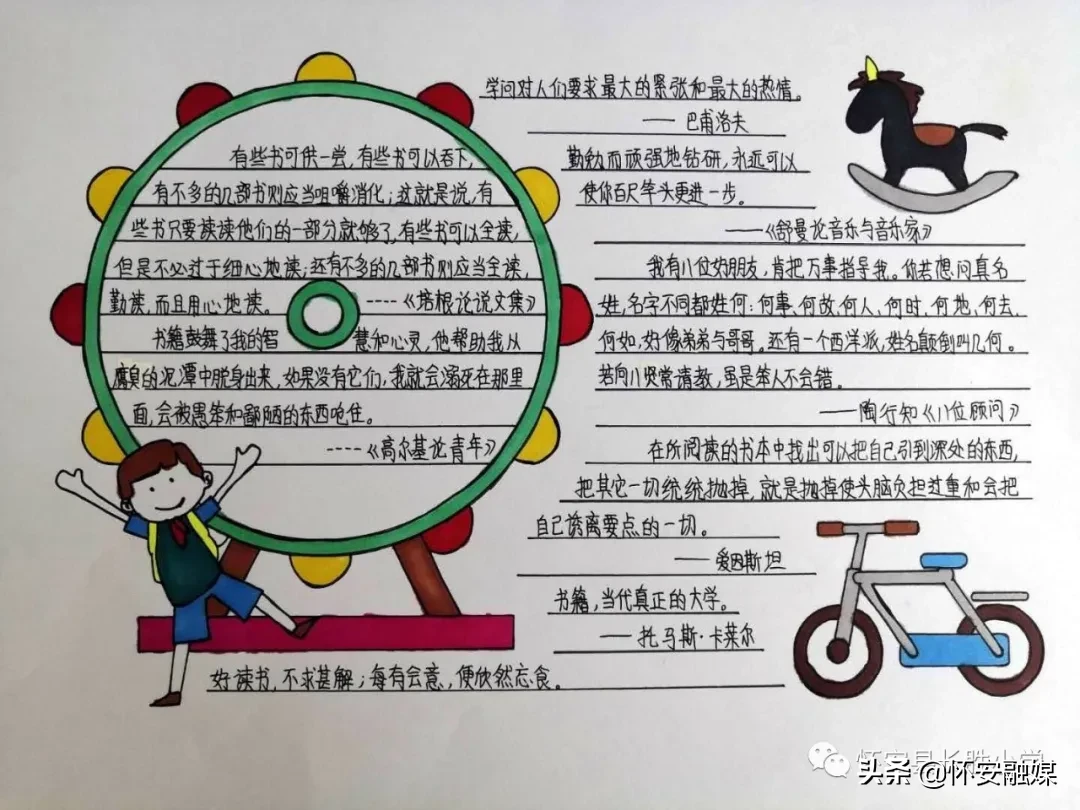 有些书可供一尝,有些书可以吞下,
有不多的几部书则应当咀嚼消化;这就是说,有
些书只要读读他们的一部分就够了,有些书可以全读,
但是不必过于细心地读;还有不多的几部书则应当全读,
勤读,而且用心地读。 ----《培根论说文集》
书籍鼓舞了我的智慧和心灵,他帮助我从
腐臭的泥潭中脱身出来,如果没有它们,我就会溺死在那里
面,会被愚笨和鄙陋的东西呛住。
----《高尔基论青年》
学问对人们要求最大的紧张和最大的热情。
—— 巴甫洛夫
勤勉而顽强地钻研,永远可以
使你百尺竿头更进一步。
——《舒曼论音乐与音乐家》
我有八位好朋友,肯把万事指导我。你若想问真名
姓,名字不同都姓何:何事、何故、何人、何时、何地、何去、
何如,好像弟弟与哥哥。还有一个西洋派,姓名颠倒叫几何。
若向八贤常请教,虽是笨人不会错。
——陶行知《八位顾问》
在所阅读的书本中找出可以把自己引到深处的东西,
把其它一切统统抛掉,就是抛掉使头脑负担过重和会把
自己诱离要点的一切。
—— 爱因斯坦
书籍,当代真正的大学。
—— 托马斯·卡莱尔
好读书,不求甚解;每有会意,便欣然忘食。
怀安县长胜小学
头条 @怀安融媒